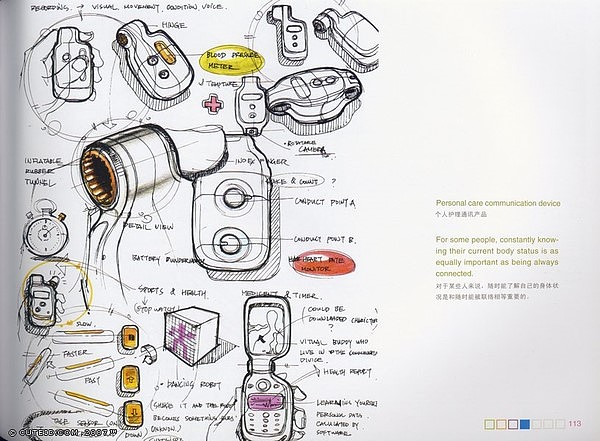 RECORDING. → VISUAL, MOVEMENT, CONDITION, VOICE.
HINGE
BLOOD PRESSURE
METER
ROTATABLE
CAMERA
INFLATABLE
RUBBER
TUNNEL
INDEX FINGER
& COUNT ?
CONDUCT POINT A
DETAIL VIEW
CONDUCT POINT B.
BATTERY
HEART RATE
MONITOR
SPORTS & HEALTH.
(STOP WATCH)
& TIMER.
SLOW.
FASTER
FAST
DOWN
COULD BE
DOWNLOADED CHARACTER
?
VIRTUAL BUDDY WHO
LIVE IN THE
DEVICE
HEALTH REPORT
DANCING ROBOT
(SHAKE IT AND THE
BECOMES SOMETHING
UNKNOWN)
LEARNING YOURSELF
PERSONAL DATA
CALCULATED BY
SOFTWARE.
Personal care communication device
个人护理通讯产品
For some people, constantly know-
ing their current body status is as
equally important as being always
connected.
对于某些人来说，随时能了解自己的身体状
况是和随时能被联络相等重要的。
113